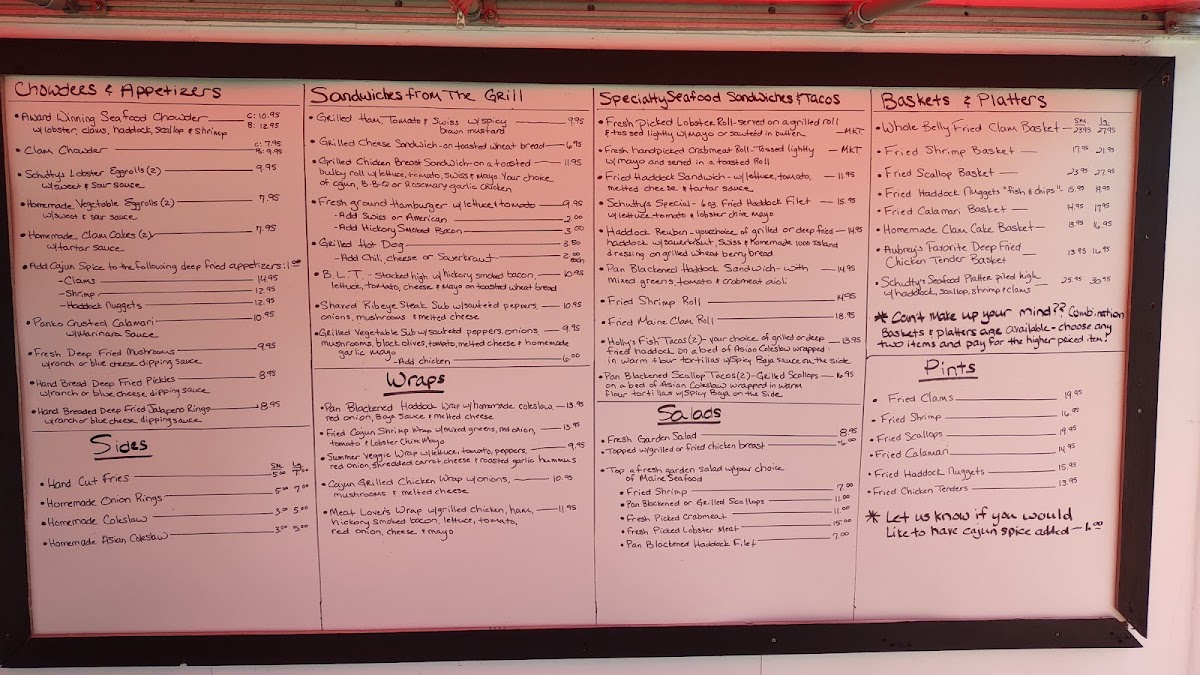 Chowders & Appetizers
• Award Winning Seafood Chowder C: 10.95
w/lobster, clams, haddock, scallop & shrimp B: 12.95
• Clam Chowder C: 7.95
B: 9.95
• Schutty's Lobster Eggrolls (2) 9.95
w/sweet & sour sauce
• Homemade Vegetable Eggrolls (2) 7.95
w/sweet & sour sauce
• Homemade Clam Cakes (2) 7.95
w/tartar sauce
• Add Cajun Spice to the following deep fried appetizers: 1.00
- Clams 14.95
- Shrimp 12.95
- Haddock Nuggets 12.95
• Panko Crusted Calamari 10.95
w/Marinara Sauce
• Fresh Deep Fried Mushrooms 9.95
w/ranch or blue cheese dipping sauce
• Hand Bread Deep Fried Pickles 8.95
w/ranch or blue cheese dipping sauce
• Hand Breaded Deep Fried Jalapeno Rings 8.95
w/ranch or blue cheese dipping sauce
Sides
Sm. Lg.
• Hand Cut Fries 5.00 7.00
• Homemade Onion Rings 5.00 7.00
• Homemade Coleslaw 3.00 5.00
• Homemade Asian Coleslaw 3.00 5.00
Sandwiches from The Grill
• Grilled Ham, Tomato & Swiss w/spicy 9.95
brown mustard
• Grilled Cheese Sandwich - on toasted wheat bread 6.95
• Grilled Chicken Breast Sandwich - on a toasted 11.95
bulky roll w/lettuce, tomato, Swiss & Mayo. Your choice
of cajun, B-B-Q or Rosemary garlic Chicken
• Fresh ground Hamburger w/lettuce & tomato 9.95
- Add Swiss or American 2.00
- Add Hickory Smoked Bacon 3.00
• Grilled Hot Dog 3.50
- Add Chili, Cheese or Sauerkraut 2.00 each
• B.L.T. - Stacked high w/hickory smoked bacon, 10.95
lettuce, tomato, cheese & Mayo on toasted wheat bread
• Shaved Ribeye Steak Sub w/sauteed peppers, 10.95
onions, mushrooms & melted cheese
• Grilled Vegetable Sub w/sauteed peppers, onions, 9.95
mushrooms, black olives, tomato, melted cheese & homemade
garlic mayo
- Add chicken 6.00
Wraps
• Pan Blackened Haddock Wrap w/homemade coleslaw, 13.95
red onion, Baja Sauce & melted cheese
• Fried Cajun Shrimp Wrap w/mixed greens, red onion, 13.95
tomato & Lobster Chive Mayo
• Summer Veggie Wrap w/lettuce, tomato, peppers, 9.95
red onion, shredded carrot, cheese & roasted garlic hummus
• Cajun Grilled Chicken Wrap w/onions, 10.95
mushrooms & melted cheese
• Meat Lover's Wrap w/grilled chicken, ham, 11.95
hickory smoked bacon, lettuce, tomato,
red onion, cheese & mayo
Specialty Seafood Sandwiches & Tacos
• Fresh Picked Lobster Roll - served on a grilled roll
& tossed lightly w/mayo or sauteed in butter MKT.
• Fresh handpicked Crabmeat Roll - Tossed lightly MKT.
w/mayo and served in a toasted Roll
• Fried Haddock Sandwich - w/lettuce, tomato, 11.95
melted cheese & tartar sauce
• Schutty's Special - 6 oz. Fried Haddock Filet 15.95
w/lettuce, tomato & lobster chive mayo
• Haddock Reuben - your choice of grilled or deep fried 14.95
haddock w/sauerkraut, Swiss & Homemade 1000 Island
dressing on grilled wheat berry bread
• Pan Blackened Haddock Sandwich - with 14.95
mixed greens, tomato & crabmeat aioli
• Fried Shrimp Roll 14.95
• Fried Maine Clam Roll 18.95
• Holly's Fish Tacos (2) - your choice of grilled or deep 13.95
fried haddock on a bed of Asian Coleslaw wrapped
in warm flour tortillas w/Spicy Baja sauce on the side
• Pan Blackened Scallop Tacos (2) - Grilled Scallops 16.95
on a bed of Asian Coleslaw wrapped in warm
flour tortillas w/Spicy Baja on the Side
Salads
• Fresh Garden Salad 8.95
• Topped w/grilled or fried chicken breast 6.00
• Top a fresh garden salad w/your choice
of Maine Seafood
• Fried Shrimp 7.00
• Pan Blackened or Grilled Scallops 11.00
• Fresh Picked Crabmeat 11.00
• Fresh Picked Lobster Meat 15.00
• Pan Blackened Haddock Filet 7.00
Baskets & Platters
Sm. Lg.
• Whole Belly Fried Clam Basket 23.95 27.95
• Fried Shrimp Basket 17.95 21.95
• Fried Scallop Basket 23.95 27.95
• Fried Haddock Nuggets "fish & chips" 15.95 19.95
• Fried Calamari Basket 14.95 17.95
• Homemade Clam Cake Basket 13.95 16.95
• Aubrey's Favorite Deep Fried
Chicken Tender Basket 13.95 16.95
• Schutty's Seafood Platter piled high 25.95 30.95
w/haddock, scallop, shrimp & clams
* Can't make up your mind?? Combination
Baskets & Platters are available - choose any
two items and pay for the higher priced item!
Pints
• Fried Clams 19.95
• Fried Shrimp 16.95
• Fried Scallops 19.95
• Fried Calamari 14.95
• Fried Haddock Nuggets 15.95
• Fried Chicken Tenders 13.95
* Let us know if you would
like to have cajun spice added - 1.00